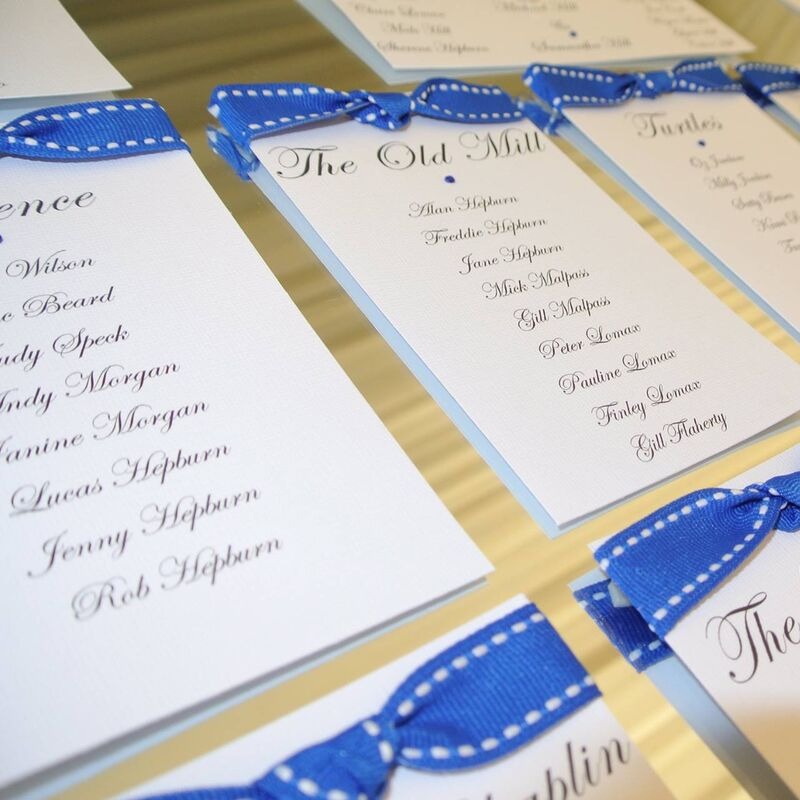 Claire Lomax
Hill
Sherene Hepburn
Hill
Samantha Hill
ence
Wilson
c Beard
udy Speck
Andy Morgan
Janine Morgan
Lucas Hepburn
Jenny Hepburn
Rob Hepburn
The Old Mill
Alan Hepburn
Freddie Hepburn
Jane Hepburn
Mick Malpass
Gill Malpass
Peter Lomax
Pauline Lomax
Finley Lomax
Gill Flaherty
Turtles
The
aplin